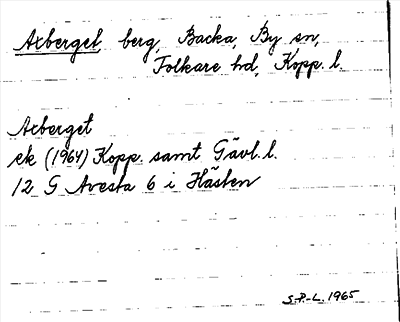 Axberget, berg, Backa, By sn,
Folkare hd, Kopp. l.
Axberget
ek (1964) Kopp. samt Gävl. l.
12 G Avesta 6 i Hästen
S.P-L. 1965